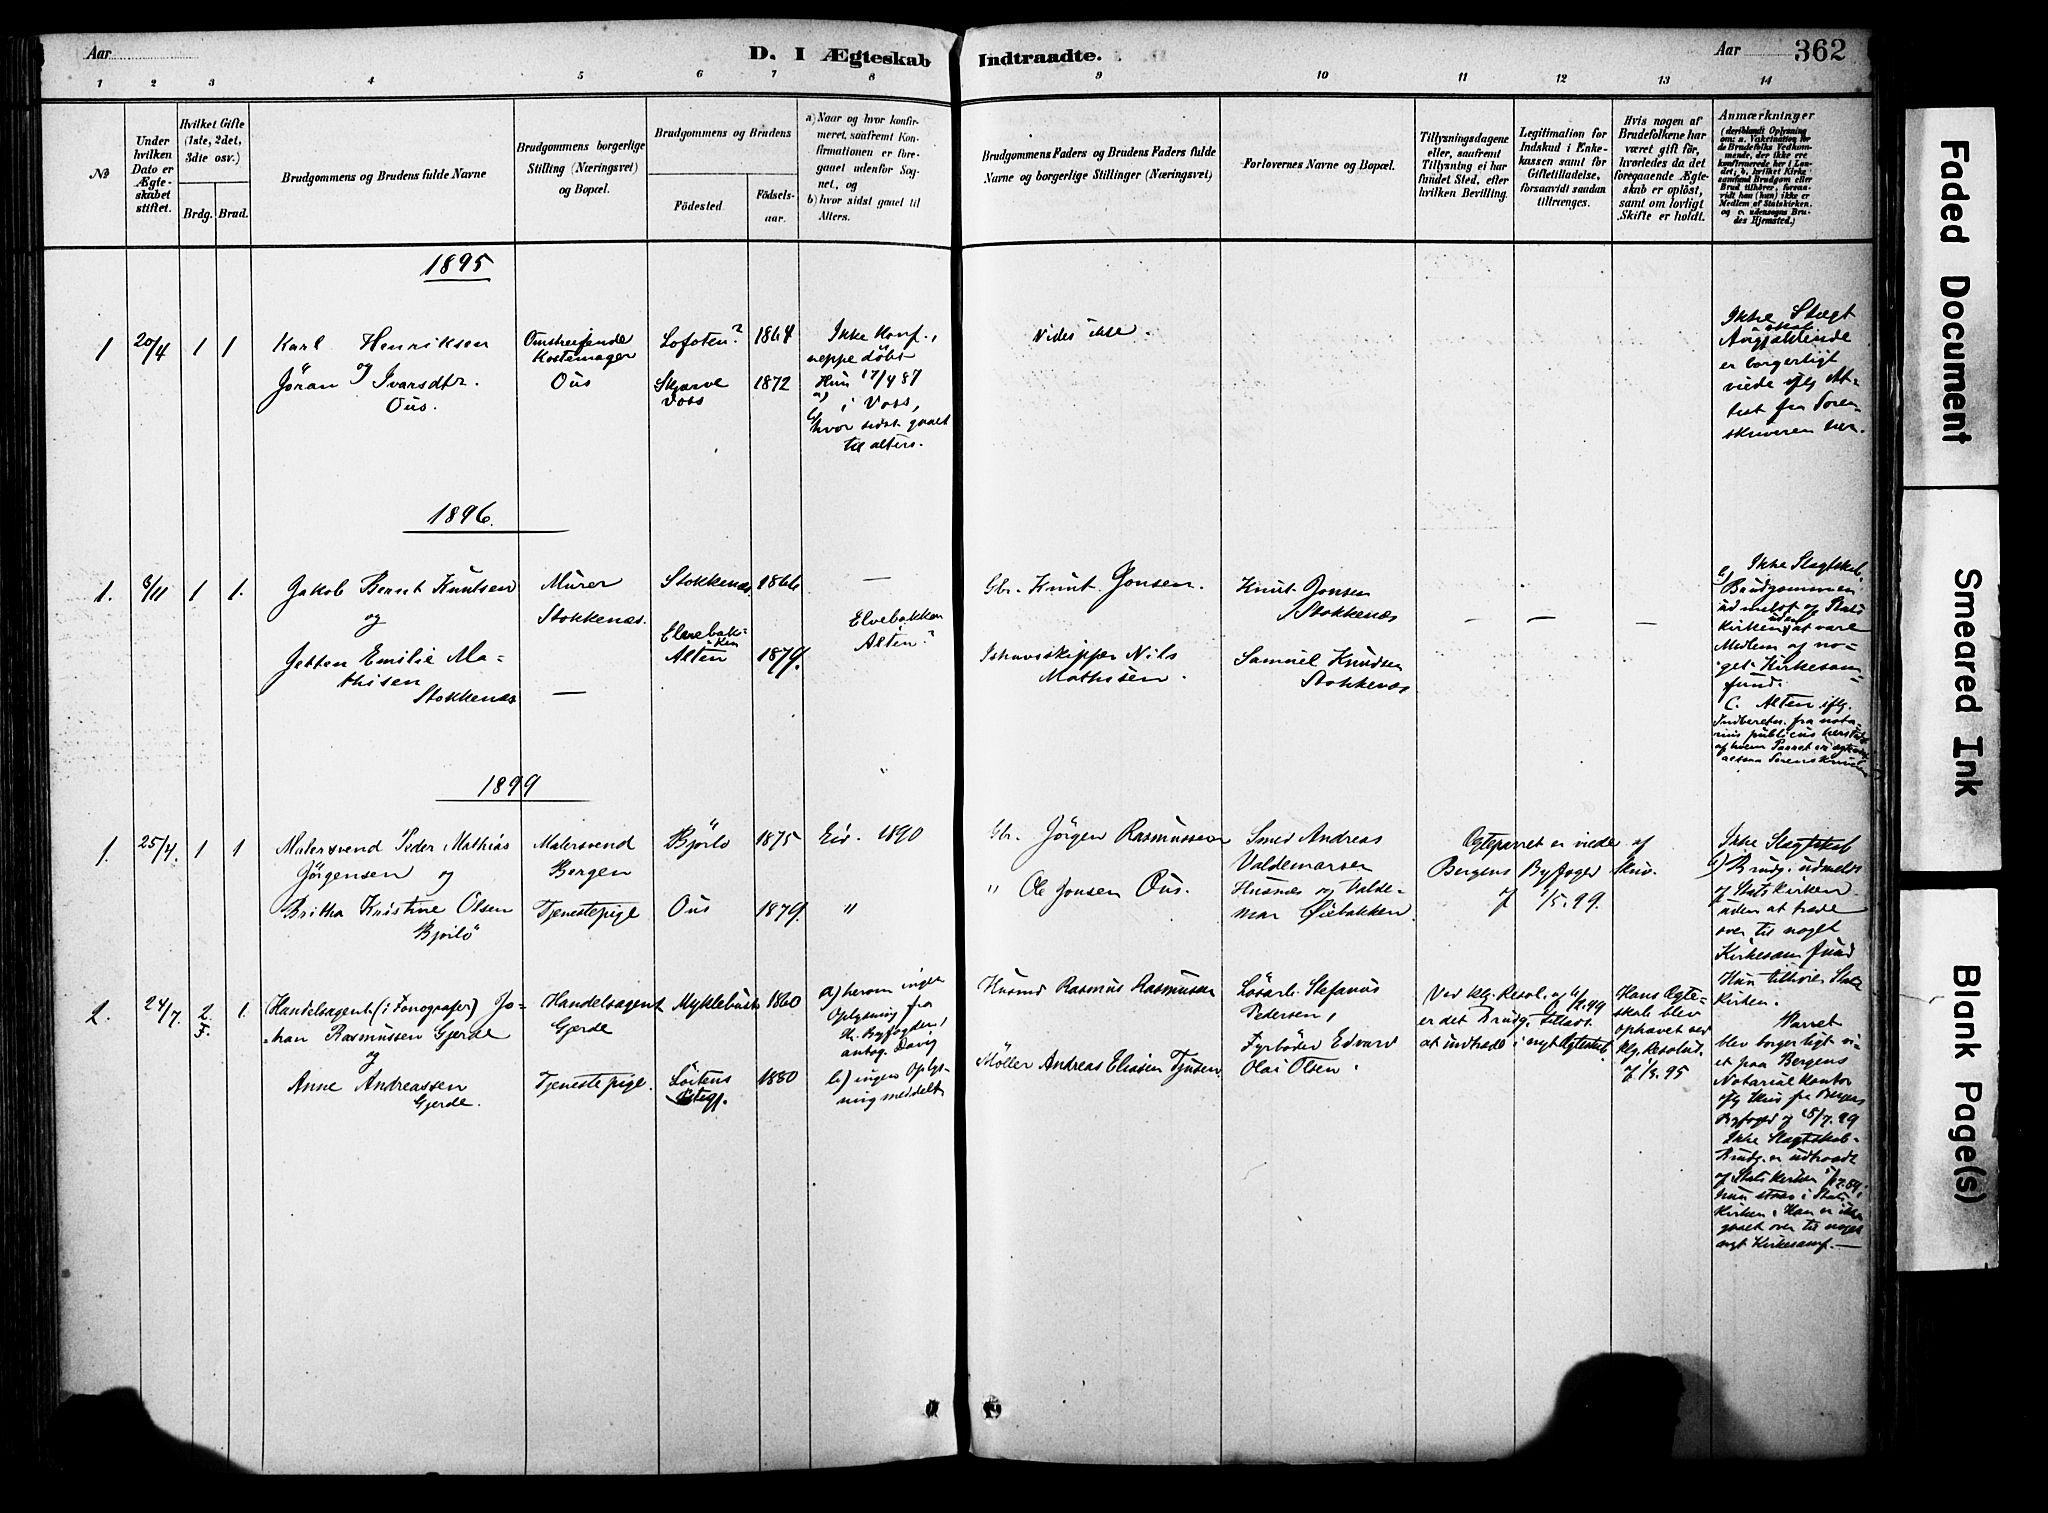 Aar
D. I Ægteskab Indtraadte.
Aar
362
1 2 3 4 5 6 7 8 9 10 11 12 13 14
No
Under hvilken Dato er Ægteskabet stiftet.
Hvilket Gifte (1ste, 2det, 3die osv.)
Brdg. Brud.
Brudgommens og Brudens fulde Navne
Brudgommens borgerlige Stilling (Næringsvei) og Bopæl.
Brudgommens og Brudens
Födested.
Födsels-aar.
a) Naar og hvor konfirmeret, saafremt Konfirmationen er foregaaet udenfor Sognet, og
b) hvor sidst gaaet til Alters.
Brudgommens Faders og Brudens Faders fulde Navne og borgerlige Stillinger (Næringsvei)
Forlovernes Navne og Bopæl.
Tillysningsdagene eller, saafremt Tillysning ei har fundet Sted, efter hvilken Bevilling.
Legitimation for Indskud i Enkekassen samt for Giftetilladelse, forsaavidt saadan tiltrænges.
Hvis nogen af Brudefolkene har været gift för, hvorledes da det foregaaende Ægteskab er oplöst, samt om lovligt Skifte er holdt.
Anmærkninger
1895
1 20/4 1 1
Karl Henriksen
og
Jöran Ivarsdtr.
Ous.
Omstreifende
Kostemager
Ous
Lofoten?
1864
Skjerve
Voss
1872
Ikke Konf.,
neppe döbt
Hun 17/4 87
a) i Voss,
b) hvor sidst gaaet
til alters.
Vides ikke.
Ikke Slægt
er borgerligt
viede iflg At-
test fra Soren-
skriveren her.
1896.
1. 6/11 1 1.
Jakob Bernt Knutsen
og
Jetten Emilie Ma-
thisen
Stokkenæs
Murer
Stokkenæs.
—
Stokkenæs
1866
Elvebak-
ken
Alten
1879.
—
Elvebakken
Alten?
Gbr. Knut Jonsen.
Ishavsskipper Nils
Mathisen.
Knut Jonsen
Stokkenæs
Samuel Knudsen
Stokkenæs
— — —
Ikke Slægtskab.
b) Brudgommen
udmeldt af Stats
Kirken uden at være
Medlem af no-
get Kirkesam-
fund.
C. Alten iflg.
Indberetn. fra nota-
rius publicus
1899
1. 25/4. 1 1
Malersvend Peder Mathias
Jörgensen og
Britha Kristine Olsen
Bjorlö
Malersvend
Bergen
Tjenestepige
Bjorlo
1875
Ous
1879.
Eid. 1890
"
Gbr. Jörgen Rasmussen
" Ole Jonsen Ous.
Smed Andreas
Valdemarsen
Husnæs og Valde-
mar Öiebakken.
Ægteparret er viede af
Bergens Byfoged Skriv.
af 1/5.99.
Ikke Slægtskab
b) Brudg. udmeldt
af Statskirken
uden at træde
over til noget
Kirkesamfund
Hun tilhör. Stats
Kirken.
2. 24/7. 2 1.
Handelsagent (i Fonografer) Jo-
han Rasmussen Gjerde
og
Anne Andreassen
Gjerde.
Handelsagent
Gjerde
Tjenestepige.
Myklebust
1860
Lödens
Prstgj.
1880
a) herom ingen
Oplysning fra
Hr. Byfogden,
b) ingen Oplys-
ning meddelt
Husmd Rasmus Rasmussen
Möller Andreas Eliasen
Lösarb. Stefanus
Pedersen,
Fyrböder Edvard
Olai Olsen.
Ved Kg. Resol. af
er det Brudg. tilladt
at indtræde i nyt Ægteskab
Hans Ægte-
skab blev
ophævet ved
Kg. Resolut.
af 1/3.95
Parret
blev borgerligt vi-
et paa Bergens
Notarialkontor
iflg Skriv fra Bergens
Byfoged af 25/7.99
Ikke Slægtskab.
Brudg. er udtraadt
af Statskirken
hun staar i Stats
Kirken. Han er ikke
gaaet over til noget
nyt Kirkesamf. —
Faded Document
Smeared Ink
Blank Page(s)